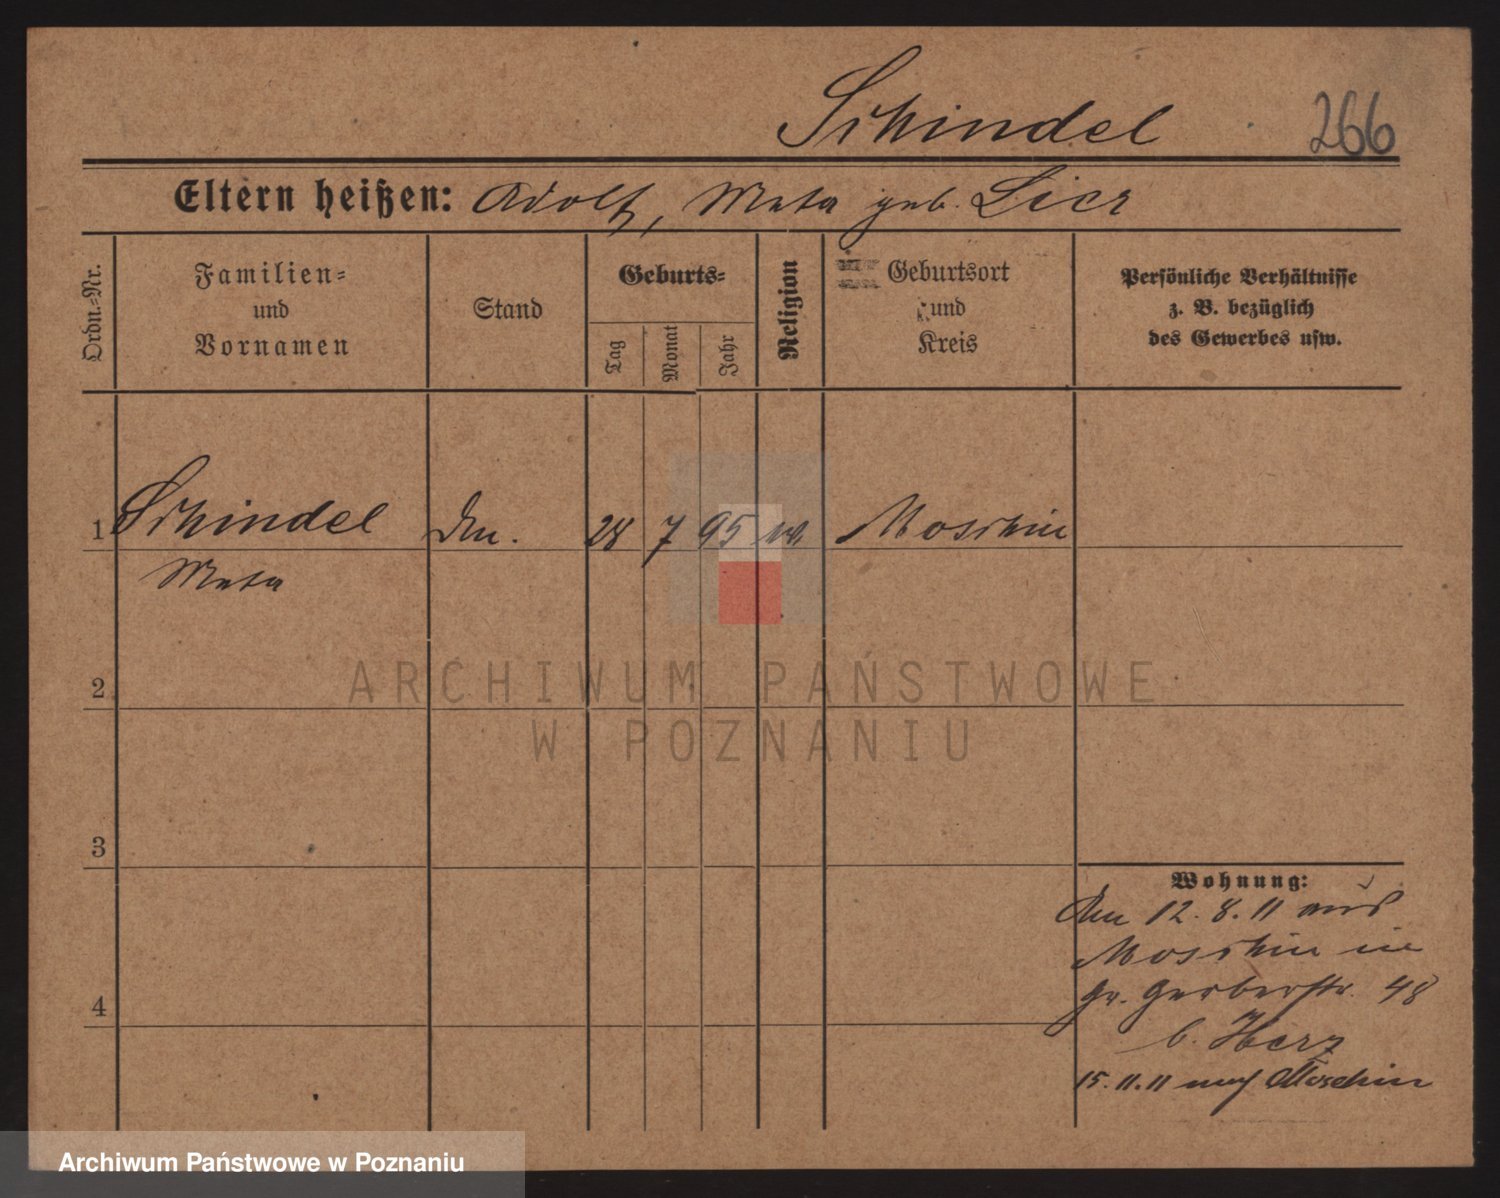 Schindel 266
Eltern heißen: Adolf, Meta geb. Lier
Ordn.=Nr.
Familien=
und
Vornamen
Stand
Geburts=
Tag
Monat
Jahr
Religion
Geburtsort
und
Kreis
Persönliche Verhältnisse
z. B. bezüglich
des Gewerbes usw.
1 Schindel 28 7 95 Moschin
Meta
2
3
4
Wohnung:
12. 8. 11 aus
Moschin in
Gr. Gerberstr. 48
b. Herz
15. 11. 11 nach Moschin
ARCHIWUM PAŃSTWOWE
W POZNANIU
Archiwum Państwowe w Poznaniu